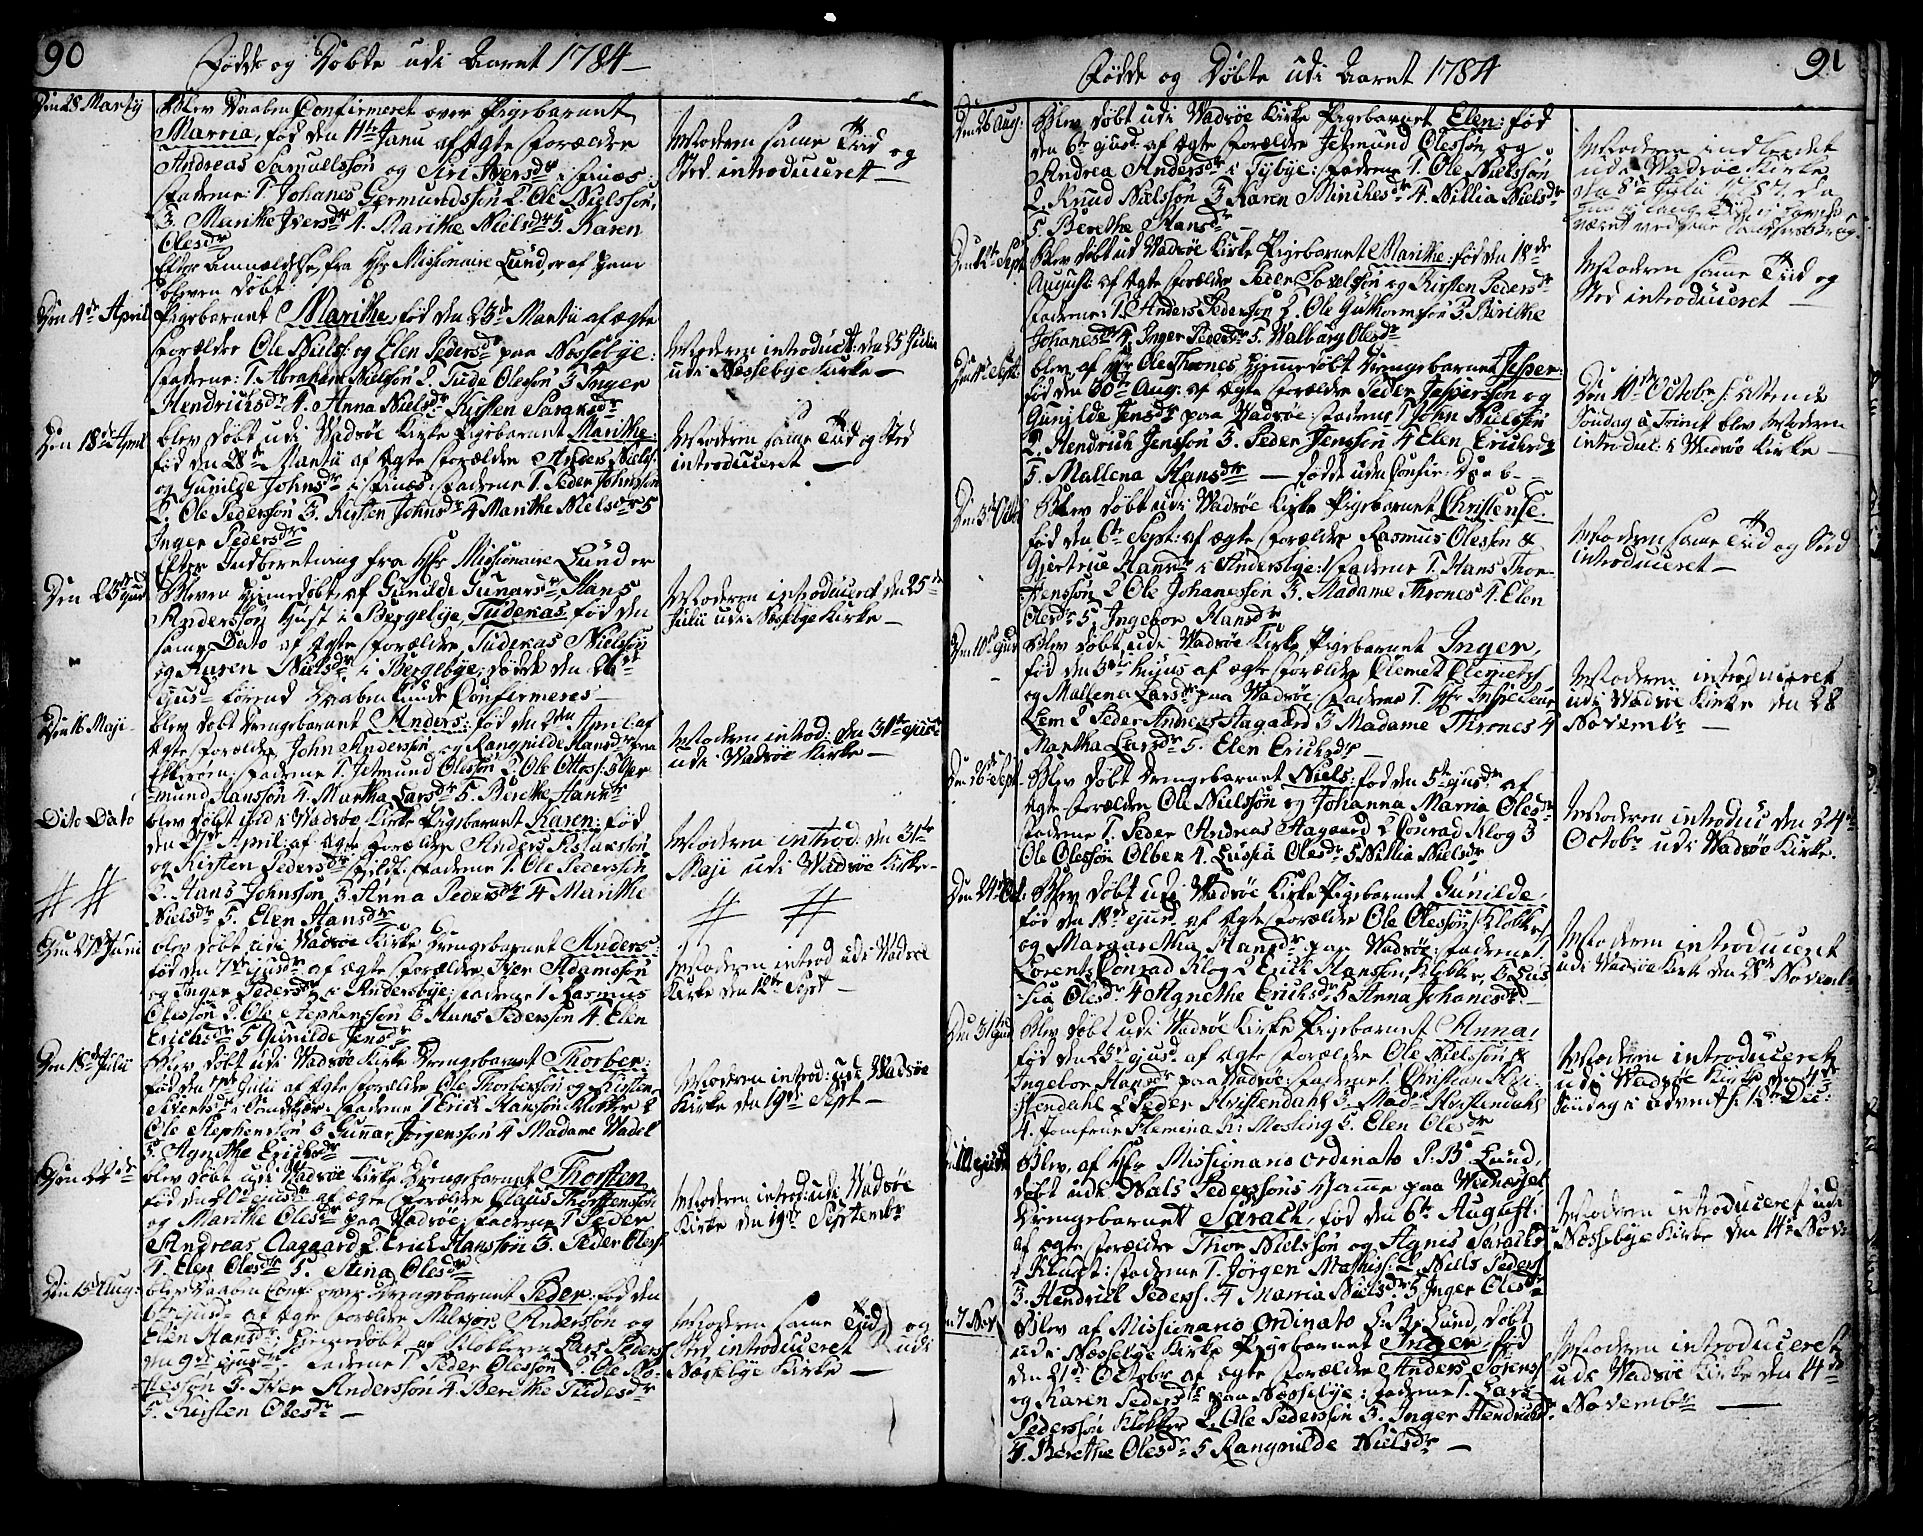 90
Fødde og Døbte udi Aaret 1784
Den 28 Marty
Blev Daaben Confirmeret over Pigebarnet
Marria, fød den 14de Janu af Ægte Forældre
Andreas Samuelsøn og Siri Iversdr i Finæs:
Fadderne: 1. Johanes Germundssøn 2. Ole Nielssøn,
3. Marithe Iversdr 4. Marithe Nielsdr 5. Karen
Olesdr
Moderen samme Tiid og
Sted introduceret
Efter Anmældelse fra Hr Missionaire Lund, er af ham
bleven døbt
Den 4de April
Pigebarnet Marithe, fød den 23de Martii af ægte
Forældre Ole Niels: og Elen Pedersdr paa Næssebye:
Fadderne: 1. Abraham Nielsøn 2. Tude Olessøn 3 Inger
Hendrichsdr 4. Anna Nielsdr Kirsten
Moderen introduct: den 25 Julii
udi Næssebye Kirke
Den 18de April
blev døbt udi Wadsøe Kirke Pigebarnet Marithe:
fød den 28de Martii af Ægte Forældre Anders Niels:
og Gunilde Johnsdr i Finæs: Fadderne 1. Peder Johnssøn
2. Ole Pederssøn 3. Kirsten Johnsdr 4 Marithe Nielsdr 5
Inger Pedersdr
Moderen samme Tiid og Sted
introduceret
Efter Indberetning fra Hr Missionaire Lund er
Den 25de ejusd
Bleven hiemedøbt af Gunilde Gunarsdr Hans
Anderssøn Hust i Bergebye, Tudenas, fød den
samme Dato af Ægte Forældre, Tudenas Nielssøn
og Karen Nielsdr i Bergebye, døde den 26de
ejusd førend Daaben kunde Confirmeres
Moderen introduceret den 25de
Julii udi Næssebye Kirke
Den 16 Maji
blev døbt Drengebarnet Anders: fød den 2den April af
Ægte Forældre John Anderssøn og Rangnilde Hansdr paa
Ekkerøen: Fadderne 1. Jetmund Olessøn 2. Ole Ottos: 3 Ger
mund Hanssøn 4. Martha Larsdr 5. Birethe Hansdr
Moderen introd: den 31te ejusd
udi Wadsøe Kirke
Dito Dato
blev døbt udi Wadsøe Kirke Pigebarnet Karen: fød
den 27de April: af Ægte Forældre Anders
og Kirsten Pedersdr Fadderne 1. Ole Pederssøn
2. Hans Johnssøn 3. Anna Pedersdr 4 Marithe
Nielsdr 5. Elen Hansdr
Moderen introd: den 31te
Maji udi Wadsøe Kirke
Den 27de Juni
blev døbt udi Wadsøe Kirke Drengebarnet Anders:
fød den 7de ejusd: af ægte Forældre Iver Adamssøn
og Inger Pedersdr i Andersbye: Fadderne 1 Rasmus
Olessøn 2. Ole Stephenssøn 3 Hans Pederssøn 4. Elen
Erichsdr 5 Gunilde Jensdr
Moderen introd udi Wadsøe
Kirke den 12te Sept
Den 18de Julii
Blev døbt udi Wadsøe Kirke Drengebarnet Thorber:
fød den Julii af Ægte Forældre Ole Thorberssøn og Kirsten
Fadderne 1 Erich Hanssøn Klokker 2
Ole Stephenssøn 3 Gunnar Jørgenssøn 4 Madame Wadel
5. Agnethe Erichsdr
Moderen introd: udi Wadsøe
Kirke den 19de Sept
blev døbt udi Wadsøe Kirke Drengebarnet Thorsten
fød den ejusd af ægte Forældre Claus Thorstenssøn
og Marithe Olesdr paa Wadsøe: Fadderne 1 Peder
Andreas Aagaard 2 Erich Hanssøn 3. Peder Oless:
4. Elen Olesdr 5. Stina Olesdr
Moderen introd: udi Wadsøe
Kirke den 19de Septembr
Den 15de Aug:
blev Daaben Conf: over Drengebarnet Peder: fød den
6te ejusd af ægte Forældre Anderssøn og
Elen Hansdr: hiemedøbt af Klokkeren Lars Peders:
den 9de ejusd: Fadderne 1 Peder Olessøn 2 Ole
3. Iver Anderssøn 4 Berethe Tudesdr
5. Kirsten Olesdr
Moderen samme Tiid og
Sted introduceret udi
Næssebye Kirke
91
Fødde og Døbte udi Aaret 1784
Den 26 Aug:
Blev døbt udi Wadsøe Kirke Pigebarnet Elen: fød
den 6te ejusd: af ægte Forældre Jetmund Olessøn og
Andrea Andersdr i Tybye: Fadderne 1. Ole Nielssøn
2. Knud Nielssøn 3 Karen Minchesdr 4. Nillia Nielsdr
5. Berethe Hansdr
Moderen indledet
udi Wadsøe Kirke
Julii da
Tid
været
Den 12te Sept
Blev døbt ud Wadsøe Kirke Pigebarnet Marithe: fød den 18de
August: af Ægte Forældre Peder Povelssøn og Kirsten Pedersdr
Fadderne: 1. Anders Pederssøn 2. Ole Guthormssøn 3. Birithe
Johanesdr 4. Inger Pedersdr 5. Walborg Olesdr
Moderen samme Tiid og
Sted introduceret
blev af Hr Ole Thrones hjemedøbt Drengebarnet Jesper:
fød den 30te Aug: af ægte Forældre Peder Jesperssøn og
Gunilde Jensdr paa Wadsøe: Fadderne 1. John Nielssøn
2. Hendrich Jenssøn 3. Peder Jenssøn 4 Elen Erichsdr
5. Mallena Hansdr
Den Octobr
Søndag a Trinit blev Moderen
introduc: i Wadsøe Kirke
Den 3de Octob
Blev døbt udi Wadsøe Kirke Pigebarnet Christense:
fød den 6te Sept: af ægte Forældre Rasmus Olesøn &
Gjertrue Hansdr i Andersbye: Fadderne 1. Hans Thor
stenssøn, 2 Ole Johanessøn 3. Madame Thrones 4. Elen
Olesdr 5. Ingebor Hansdr
Moderen samme Tiid og Sted
introduceret
Den 10de ejusd
Blev døbt udi Wadsøe Kirke Pigebarnet Inger,
fød den 3de hujus af ægte Forældre Clemet Clemets:
og Mallena Larsdr paa Wadsøe, Fadderne 1. Hr Inspecteur
Lem 2 Peder Andreas Aagaard 3 Madame Thrones 4
Martha Larsdr 5. Elen Erichsdr
Moderen introduceret
udi Wadsøe Kirke den 28
Novembr
Den 26de Sept
Blev døbt Drengebarnet Niels: fød den 5te ejusdr af
Ægte Forældre Ole Nielssøn og Johanna Marria Olesdr
Fadderne 1. Peder Andreas Aagaard 2 Conrad Klog 3
Ole Olessøn Olben 4. Lussia Olesdr 5 Nillia Nielsdr
Moderen introduc den 24de
Octobr udi Wadsøe Kirke.
Den 24de Oct:
Blev døbt udi Wadsøe Kirke Pigebarnet Gunilde,
fød den 18de ejusd: af Ægte Forældre Ole Olessøn
og Margarethia Hansdr paa Wadsøe: Fadderne 1.
Lorentz Conrad Klog 2 Erich Hanssøn, Klokker, 3 Lus
sia Olesdr 4 Agnethe Erichsdr 5 Anna Johanesdr
Moderen introduceret
udi Wadsøe Kirke den 28de Novemb
Den 31te ejusd
Blev døbt udi Wadsøe Kirke Pigebarnet Anna:
fød den 23de ejusd: af ægte Forældre Ole Nielssøn &
Ingebor Hansdr paa Wadsøe: Fadderne 1. Christian
2 Peder 3 Madme
4. Jomfrue Flemina H: Mesling 5. Elen Olesdr
Moderen introduceret
udi Wadsøe Kirke den
Søndag i Advent: 12te Dec:
Blev af Hr Missionario ordinato P. B. Lund,
døbt udi Niels Pederssøns Hjemme paa
Drengebarnet Sarach, fød den 6te August:
af ægte Forældre Thor Nielssøn og Agnis
i Klubt: Fadderne 1. Jørgen Mathis: 2. Niels Peders:
3. Hendrich Peders: 4 Marria Nielsdr 5 Inger Olesdr
Moderen introduceret udi
Næssebye Kirke den 14de Nov:
7 Nov
Blev af Missionario Ordinato Lund, døbt
udi Næssebye Kirke Pigebarnet Inger: fød
den 21de Octobr af ægte Forældre Anders Sørens:
og Karen Pedersdr paa Næssebye: Fadderne 1. Lars
Pederssøn Klokker 2. Ole Pederssøn 3. Inger Hendrichsdr
4. Berethe Olesdr 5 Rangnilde Nielsdr
Moderen introduceret
udi Wadsøe Kirke den 14de
Novembr